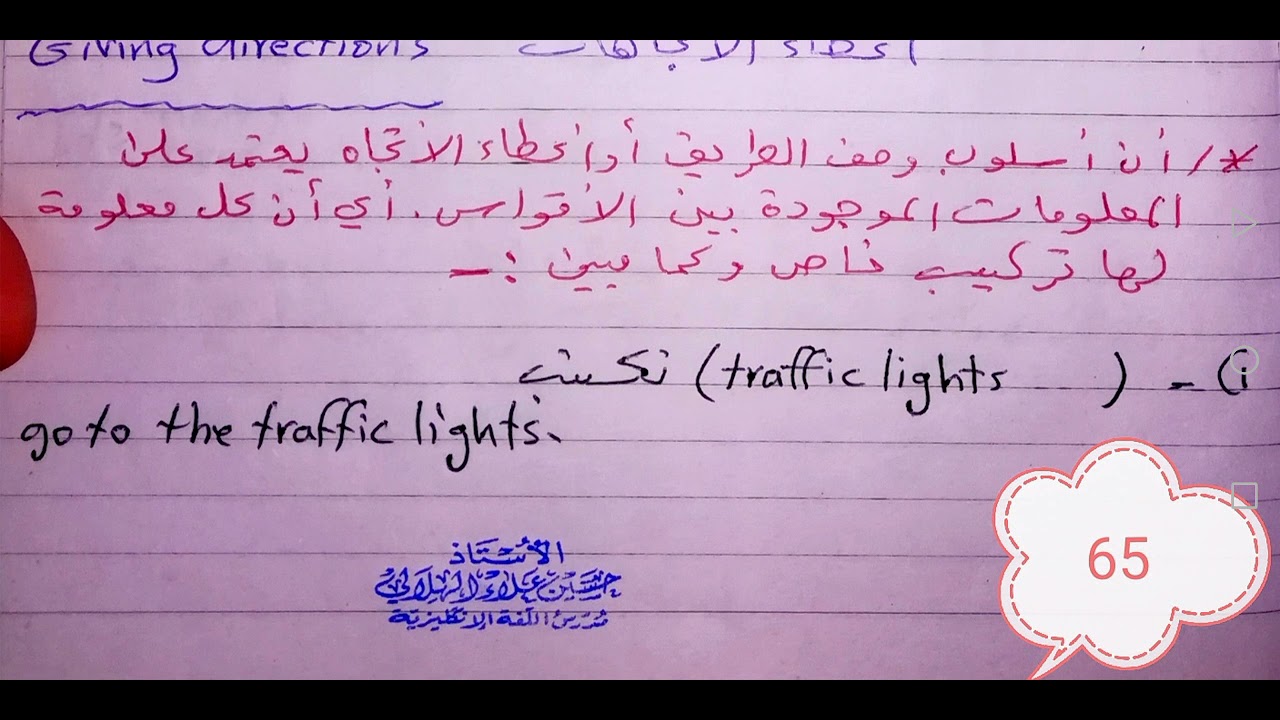 Giving directions اعطاء الاتجاهات
*/ أن أسلوب وصف الطريق أو إعطاء الأتجاه يعتمد على
المعلومات الموجودة بين الأقواس. أي أن كل معلومة
لها تركيب خاص وكما مبين :-
i) - (traffic lights ) نكتب
go to the traffic lights.
65
الأستاذ
حسين علاء الهلالي
مدرس اللغة الإنكليزية